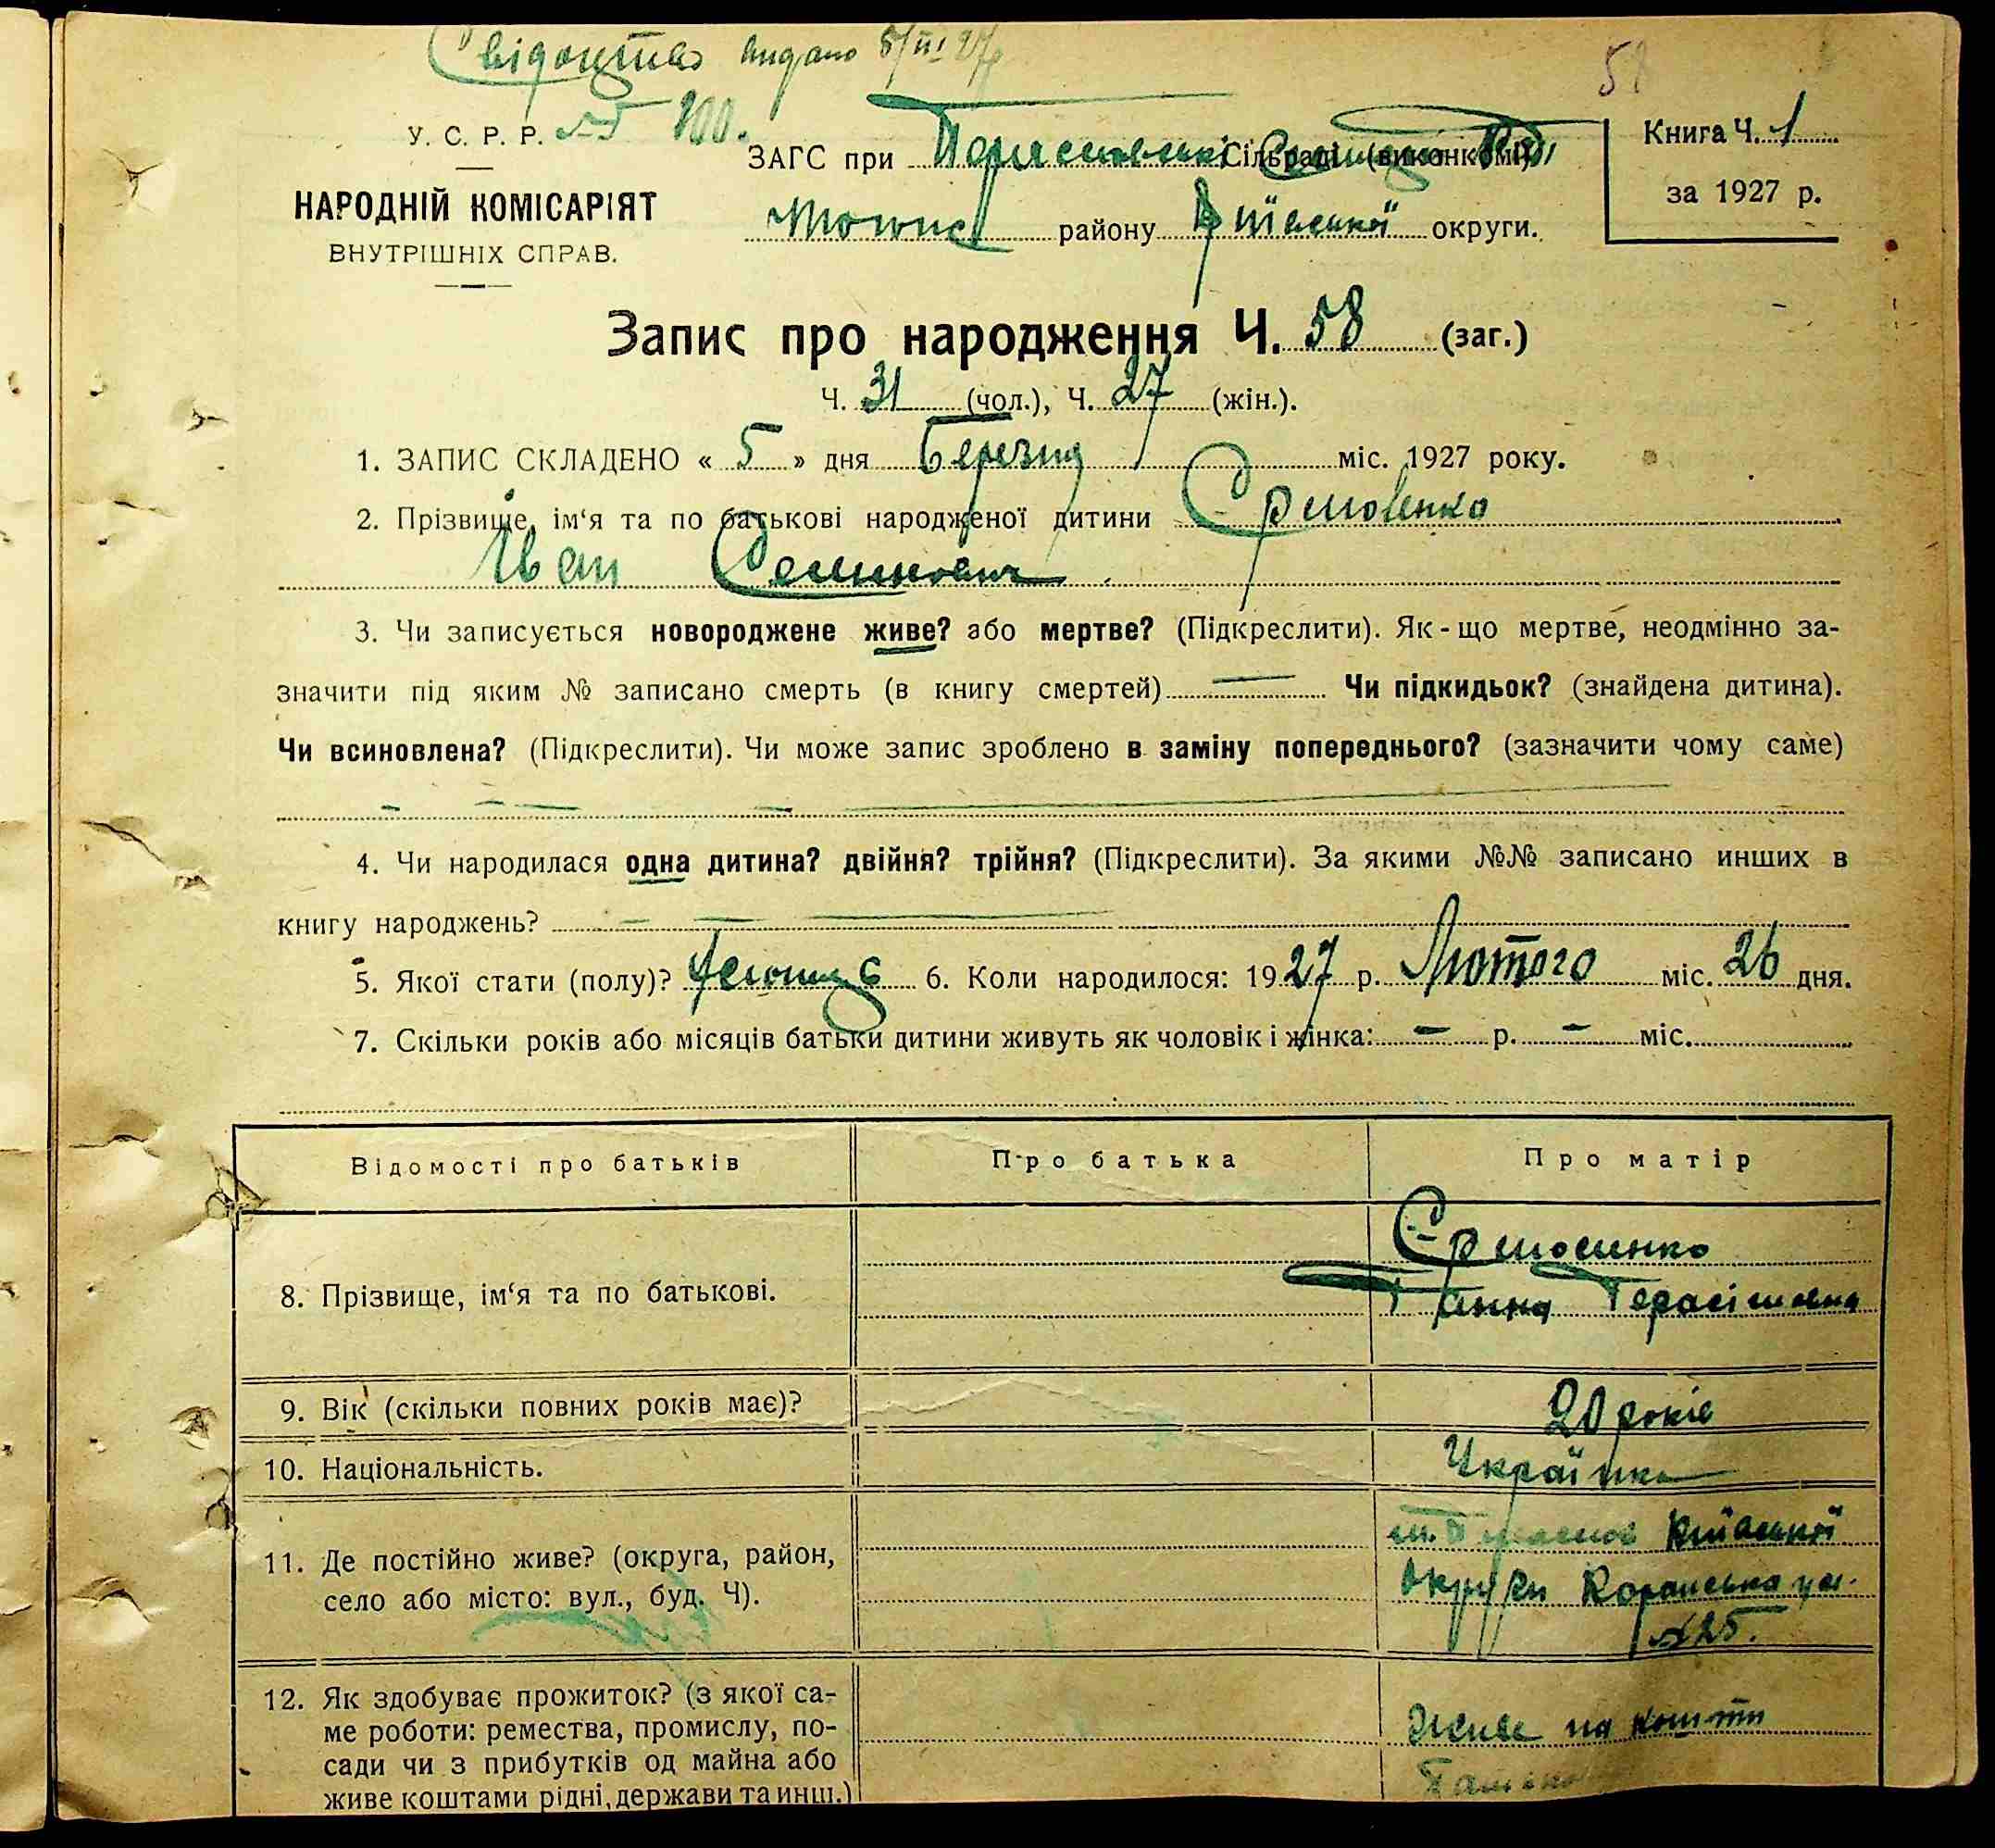 Свідоцтво видано 5/III 27р
58
У. С. Р. Р. № 200.
ЗАГС при Сільраді (виконкомі)
Книга Ч. 1
за 1927 р.
НАРОДНІЙ КОМІСАРІЯТ
ВНУТРІШНІХ СПРАВ.
району Київської округи.
Запис про народження Ч. 58 (заг.)
Ч. 31 (чол.), Ч. 27 (жін.).
1. ЗАПИС СКЛАДЕНО « 5 » дня Березня міс. 1927 року.
2. Прізвище, ім‘я та по батькові народженої дитини
Іван Семенович.
3. Чи записується новороджене живе? або мертве? (Підкреслити). Як-що мертве, неодмінно за-
значити під яким № записано смерть (в книгу смертей) — Чи підкидьок? (знайдена дитина).
Чи всиновлена? (Підкреслити). Чи може запис зроблено в заміну попереднього? (зазначити чому саме)
4. Чи народилася одна дитина? двійня? трійня? (Підкреслити). За якими №№ записано инших в
книгу народжень?
5. Якої стати (полу)? 6. Коли народилося: 1927 р. Лютого міс. 26 дня.
7. Скільки років або місяців батьки дитини живуть як чоловік і жінка: — р. — міс.
Відомості про батьків
Про батька
Про матір
8. Прізвище, ім‘я та по батькові.
Ганна Герасімовна
9. Вік (скільки повних років має)?
20 років
10. Національність.
Українка
11. Де постійно живе? (округа, район,
село або місто: вул., буд. Ч).
Київської
Округи вул.
№ 25.
12. Як здобуває прожиток? (з якої са-
ме роботи: ремества, промислу, по-
сади чи з прибутків од майна або
живе коштами рідні, держави та инш.)
Живе на кошти